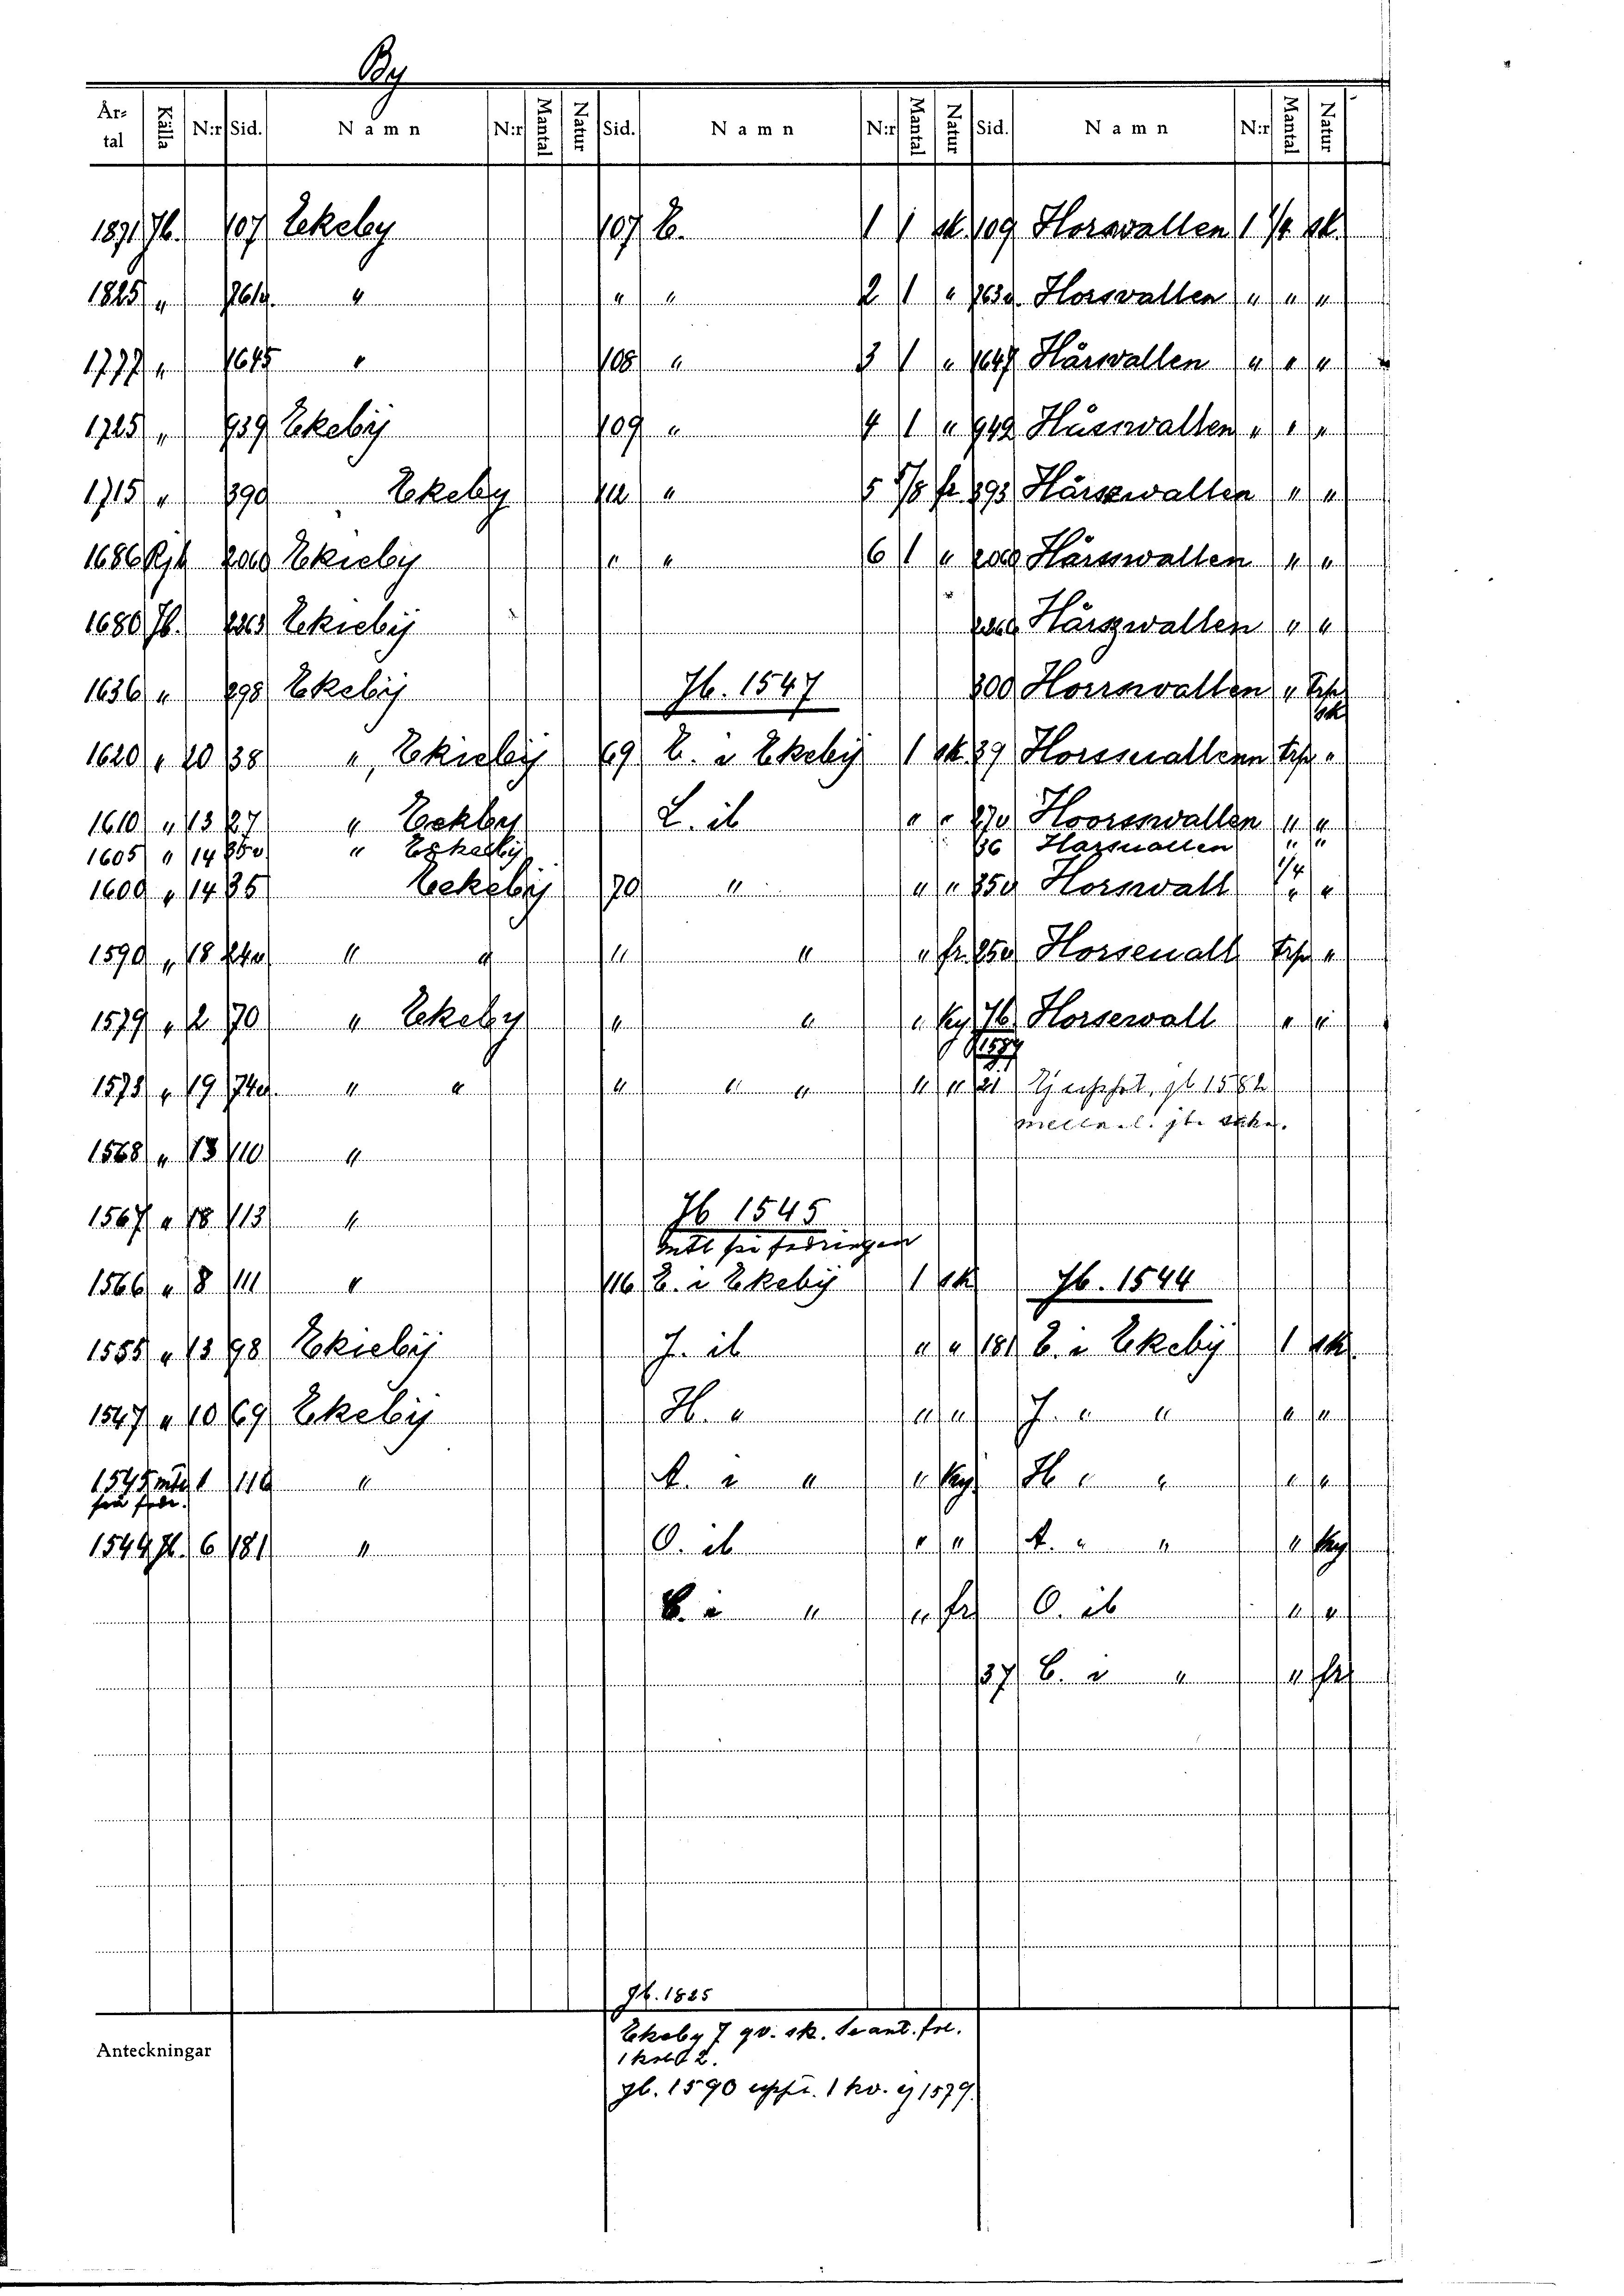 By
Årtal Källa N:r Sid. Namn N:r Mantal Natur Sid. Namn N:r Mantal Natur Sid. Namn N:r Mantal Natur
1871 Jb. 107 Ekeby 107 E. 1 1 sk. 109 Horsvallen 1 1/4 sk.
1825 " 761v. " " " 2 1 " 763v. Horsvallen " " "
1777 " 1645 " 108 " 3 1 " 1647 Hårsvallen " " "
1725 " 939 Ekebij 109 " 4 1 " 942 Hårswallen " " "
1715 " 390 Ekeby 112 " 5 5/8 fr. 393 Hårszwallen " "
1686 Rjb 2060 Ekieby " " 6 1 " 2060 Hårsswallen " "
1680 Jb. 2263 Ekiebij Hårszwallen " "
1636 " 298 Ekebij Jb. 1547 300 Horrswallen " Trp sk
1620 " 20 38 " , Ekiebij 69 E. i Ekebij 1 sk 39 Horssuallenn Trp "
1610 " 13 27 " Eekby L. ib " " 27v Hoorsswallen " "
1605 " 14 35v " 36 Harsuallen " "
1600 " 14 35 Eekebij 70 " " " 35v Horswall 1/4 " "
1590 " 18 24v " " " " " fr. 25v Horseuall Trp "
1579 " 2 70 " Ekeby " " " ky 76 Horsewall " "
1573 " 19 74v. " " " " " " " 21 Ej uppfört, jb 1582
1568 " 13 110 "
1567 " 18 113 " Jb 1545
fodringen
1566 " 8 111 " 116 E. i Ekebij 1 sk Jb. 1544
1555 " 13 98 Ekiebij J. ib " " 181 E. i Ekebij 1 sk
1547 " 10 69 Ekebij H. " " " J. " " " "
1545 1 116 " A. i " " ky H " " " "
1544 Jb. 6 181 " O. ib " " A. " " " ky
E. i " " fr O. ib " "
37 E. i " " fr
Jb. 1825
Anteckningar
Ekeby 7 qv. sk.
jb. 1590 1 kv. ej 1579.